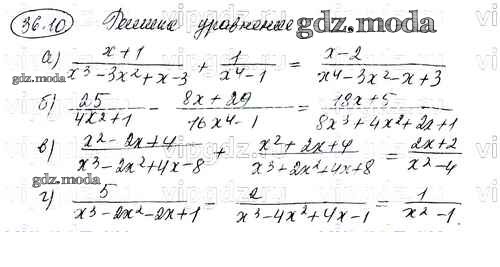 36.10) Решите уравнение gdz.moda
а) \frac{x+1}{x^3-3x^2+x-3} + \frac{1}{x^4-1} = \frac{x-2}{x^4-3x^2-x+3}
gdz.moda
б) \frac{25}{4x^2+1} - \frac{8x+29}{16x^4-1} = \frac{18x+5}{8x^3+4x^2+2x+1}
в) \frac{x^2-2x+4}{x^3-2x^2+4x-8} + \frac{x^2+2x+4}{x^3+2x^2+4x+8} = \frac{2x+2}{x^2-4}
gdz.moda
г) \frac{5}{x^3-2x^2-2x+1} - \frac{2}{x^3-4x^2+4x-1} = \frac{1}{x^2-1}.